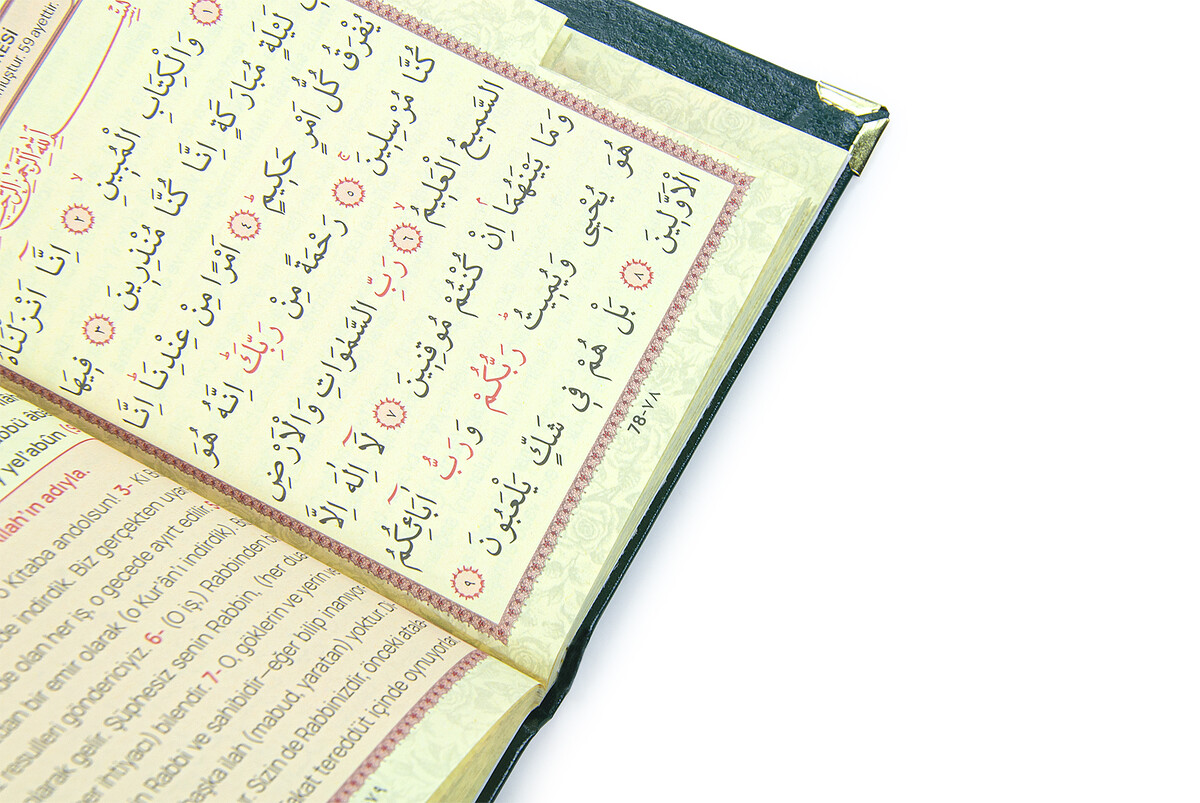 RESİ
muştur. 59 ayettir.
بِسْمِ اللّٰهِ الرَّحْمٰنِ الرَّحِيمِ
١ وَالْكِتَابِ الْمُبِينِۙ ٢ اِنَّٓا اَنْزَلْنَاهُ
لَيْلَةٍ مُبَارَكَةٍ اِنَّا كُنَّا مُنْذِرِينَ ٣ فِيهَا
يُفْرَقُ كُلُّ اَمْرٍ حَكِيمٍۜ ٤ اَمْرًا مِنْ عِنْدِنَاۜ اِنَّا
كُنَّا مُرْسِلِينَۚ ٥ رَحْمَةً مِنْ رَبِّكَۜ اِنَّهُ هُوَ
السَّمِيعُ الْعَلِيمُۙ ٦ رَبِّ السَّمٰوَاتِ وَالْاَرْضِ
وَمَا بَيْنَهُمَاۢ اِنْ كُنْتُمْ مُوقِنِينَ ٧ لَٓا اِلٰهَ اِلَّا
هُوَ يُحْيِي وَيُمِيتُۜ رَبُّكُمْ وَرَبُّ اٰبَٓائِكُمُ
الْاَوَّلِينَ ٨ بَلْ هُمْ فِي شَكٍّ يَلْعَبُونَ ٩
78-٧٨
yel'abûn
llah'ın adıyla.
o Kitaba andolsun! 3- Ki B
de indirdik. Biz gerçekten uya
de olan her iş, o gecede ayırt edilir.
dan bir emir olarak (o Kur'an'ı indirdik). B
resulleri göndericiyiz. 6- (O iş,) Rabbinden
olarak gelir. Şüphesiz senin Rabbin, (her dua
er ihtiyacı) bilendir. 7- O, göklerin ve yerin
in Rabbi ve sahibidir–eğer bilip inanıyor
başka ilah (mabud, yaratan) yoktur.
r. Sizin de Rabbinizdir, önceki atala
akat tereddüt içinde oynuyorlar
٧٩